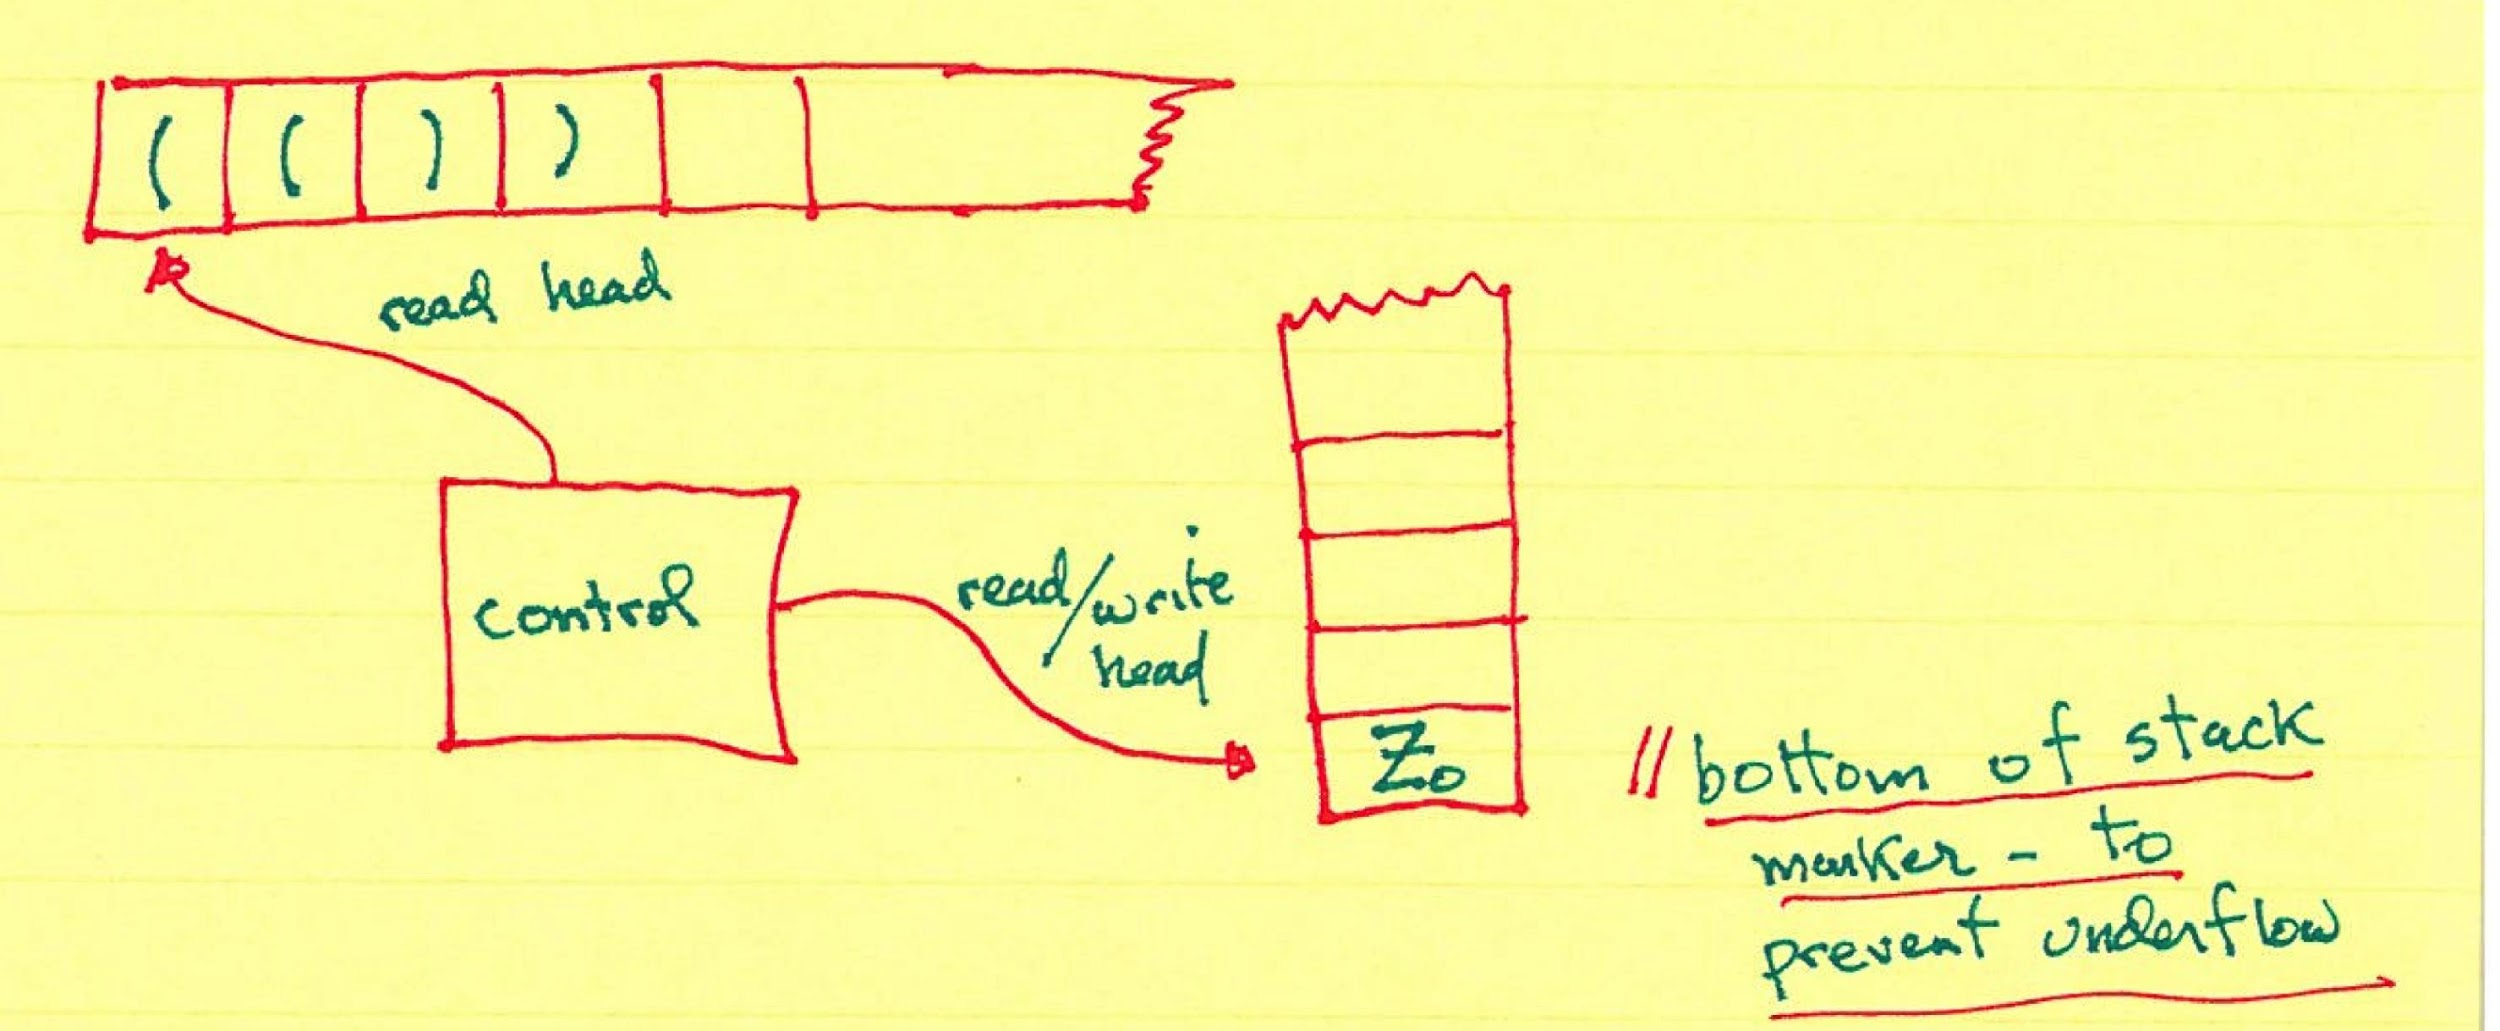 ( ( ) )
read head
control
read/write
head
Z₀
// bottom of stack
marker - to
prevent underflow